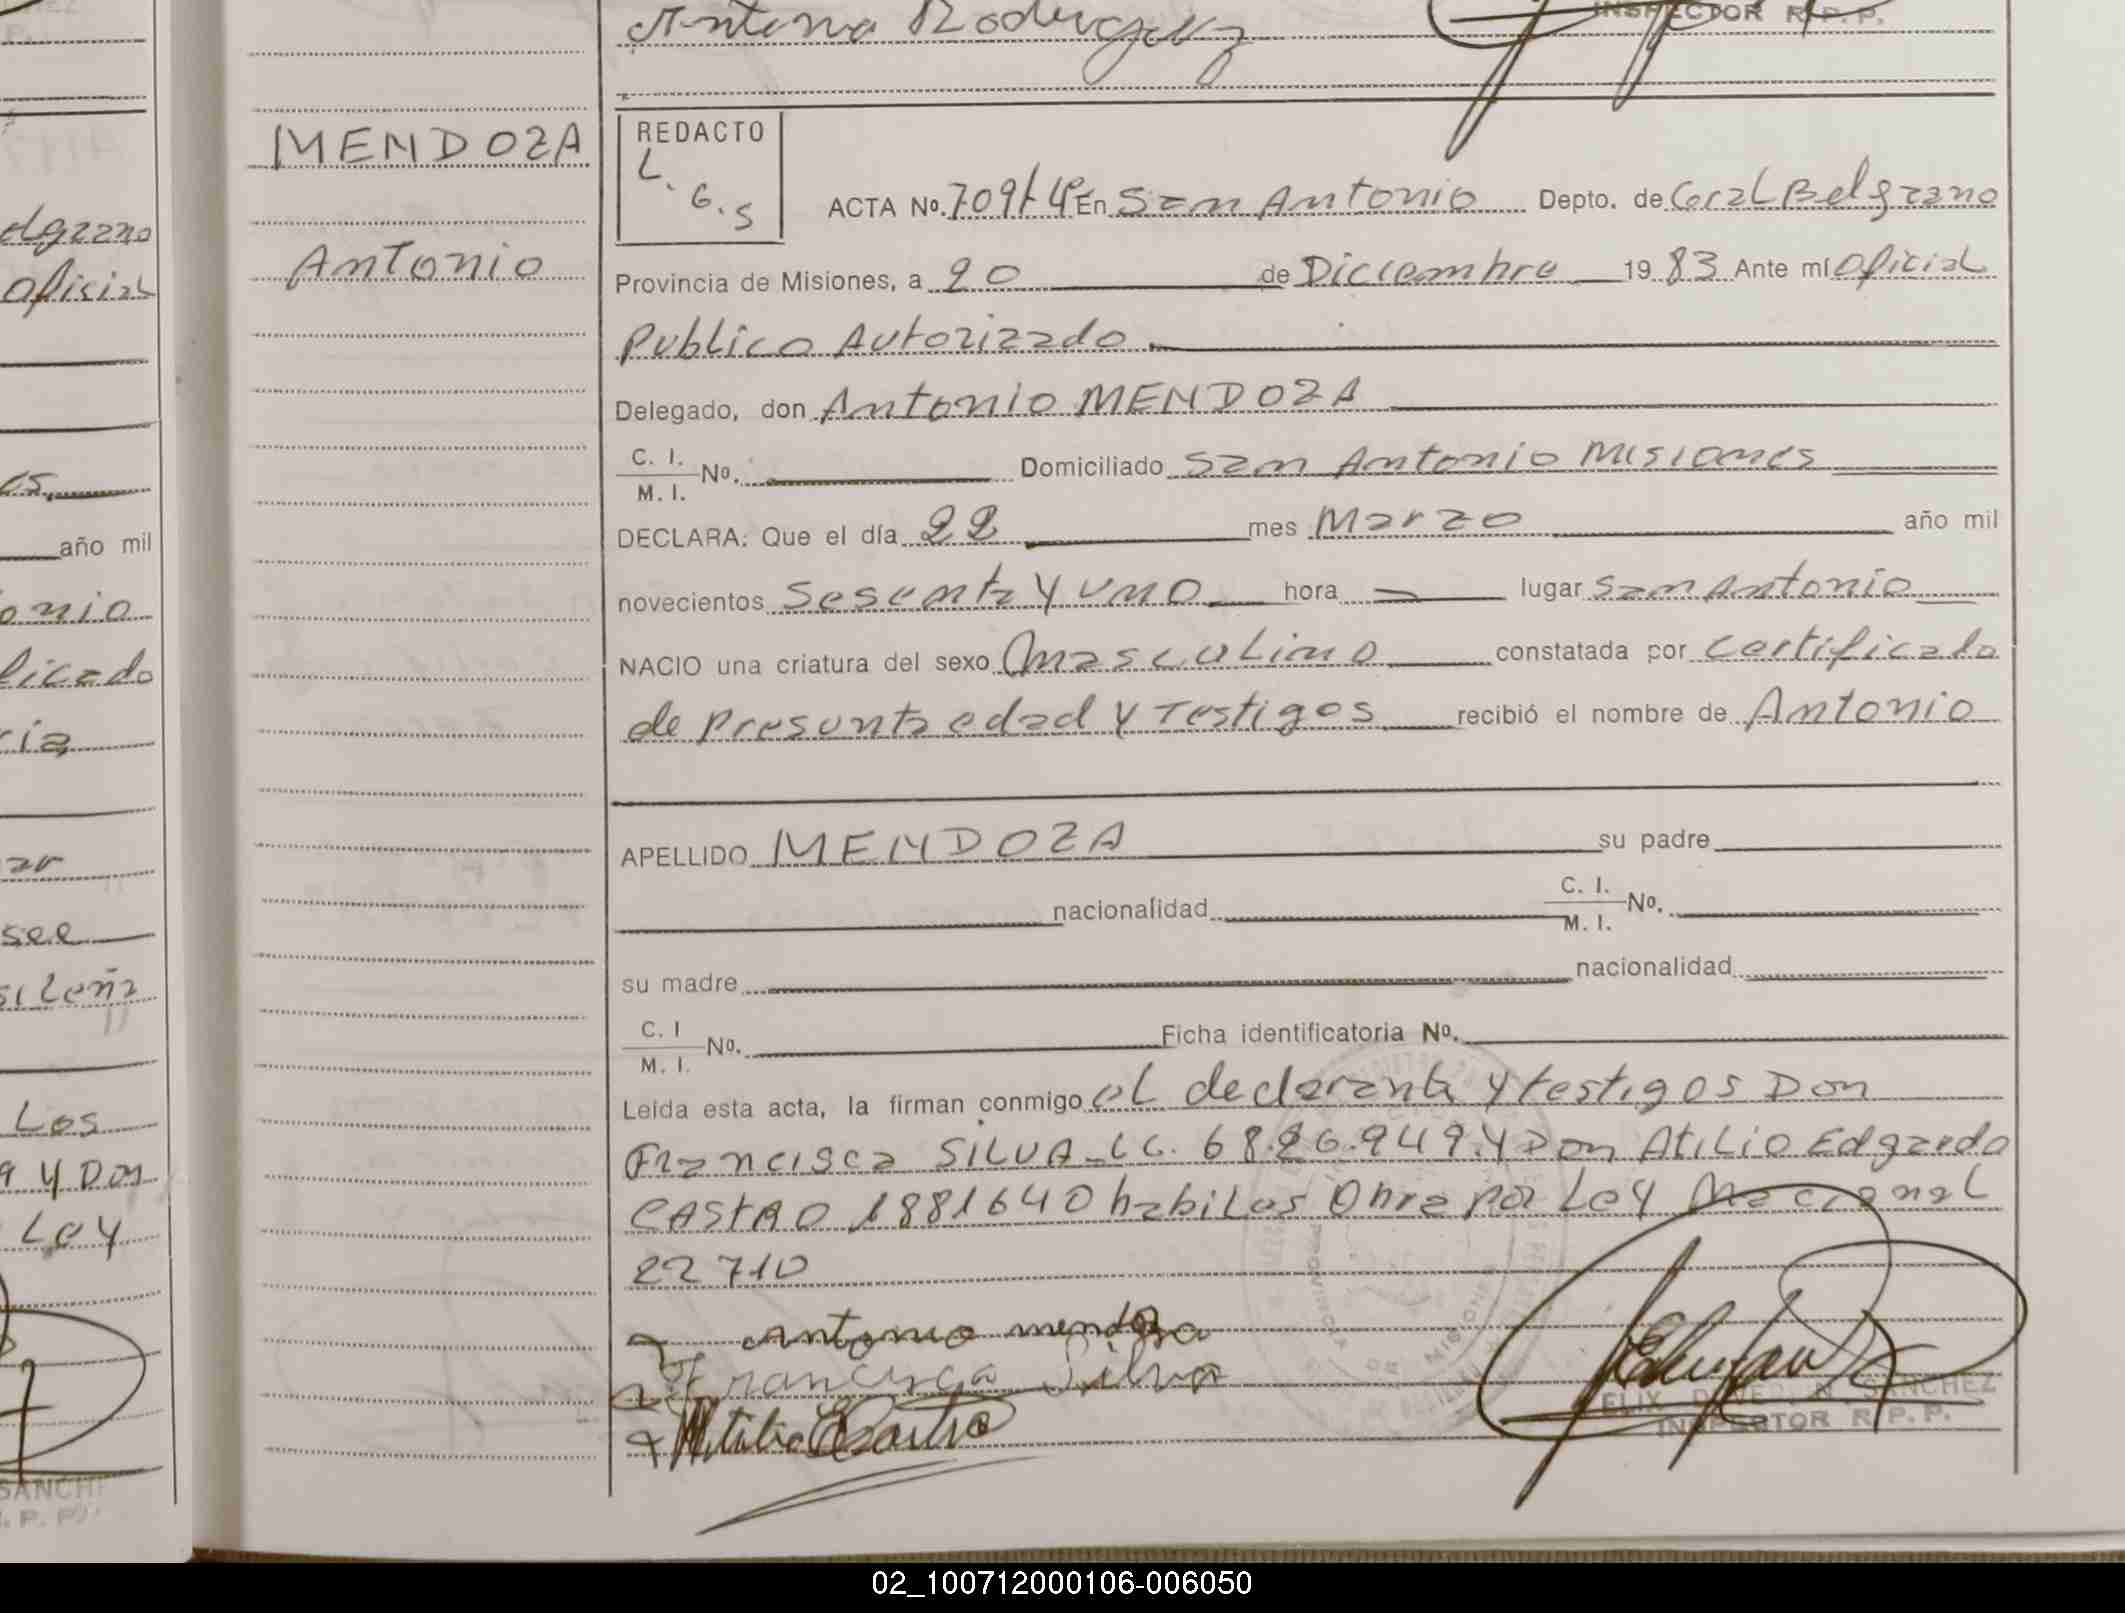 Antonio Rodriguez
INSPECTOR R.P.P.
MENDOZA
Antonio
REDACTO
L.
G.S
ACTA Nº. 709 En San Antonio Depto. de Gral Belgrano
Provincia de Misiones, a 20 de Diciembre 1983 Ante mí Oficial
Publico Autorizado
Delegado, don Antonio MENDOZA
C. I.
M. I. Nº. Domiciliado San Antonio Misiones
DECLARA: Que el día 22 mes Marzo año mil
novecientos Sesenta y uno hora lugar San Antonio
NACIO una criatura del sexo Masculino constatada por Certificado
de Presunta edad y Testigos recibió el nombre de Antonio
APELLIDO MENDOZA su padre
nacionalidad C. I.
M. I. Nº.
su madre nacionalidad
C. I
M. I. Nº. Ficha identificatoria Nº.
Leída esta acta, la firman conmigo el declarante y testigos Don
Francisca SILVA LC. 6.826.949 y Don Atilio Edgardo
CASTRO 1881640 habiles Obra por Ley Nacional
22710
Antonio mendoza
Francisca Silva
Atilio E Castro
FELIX N. SANCHEZ
INSPECTOR R.P.P.
02_100712000106-006050